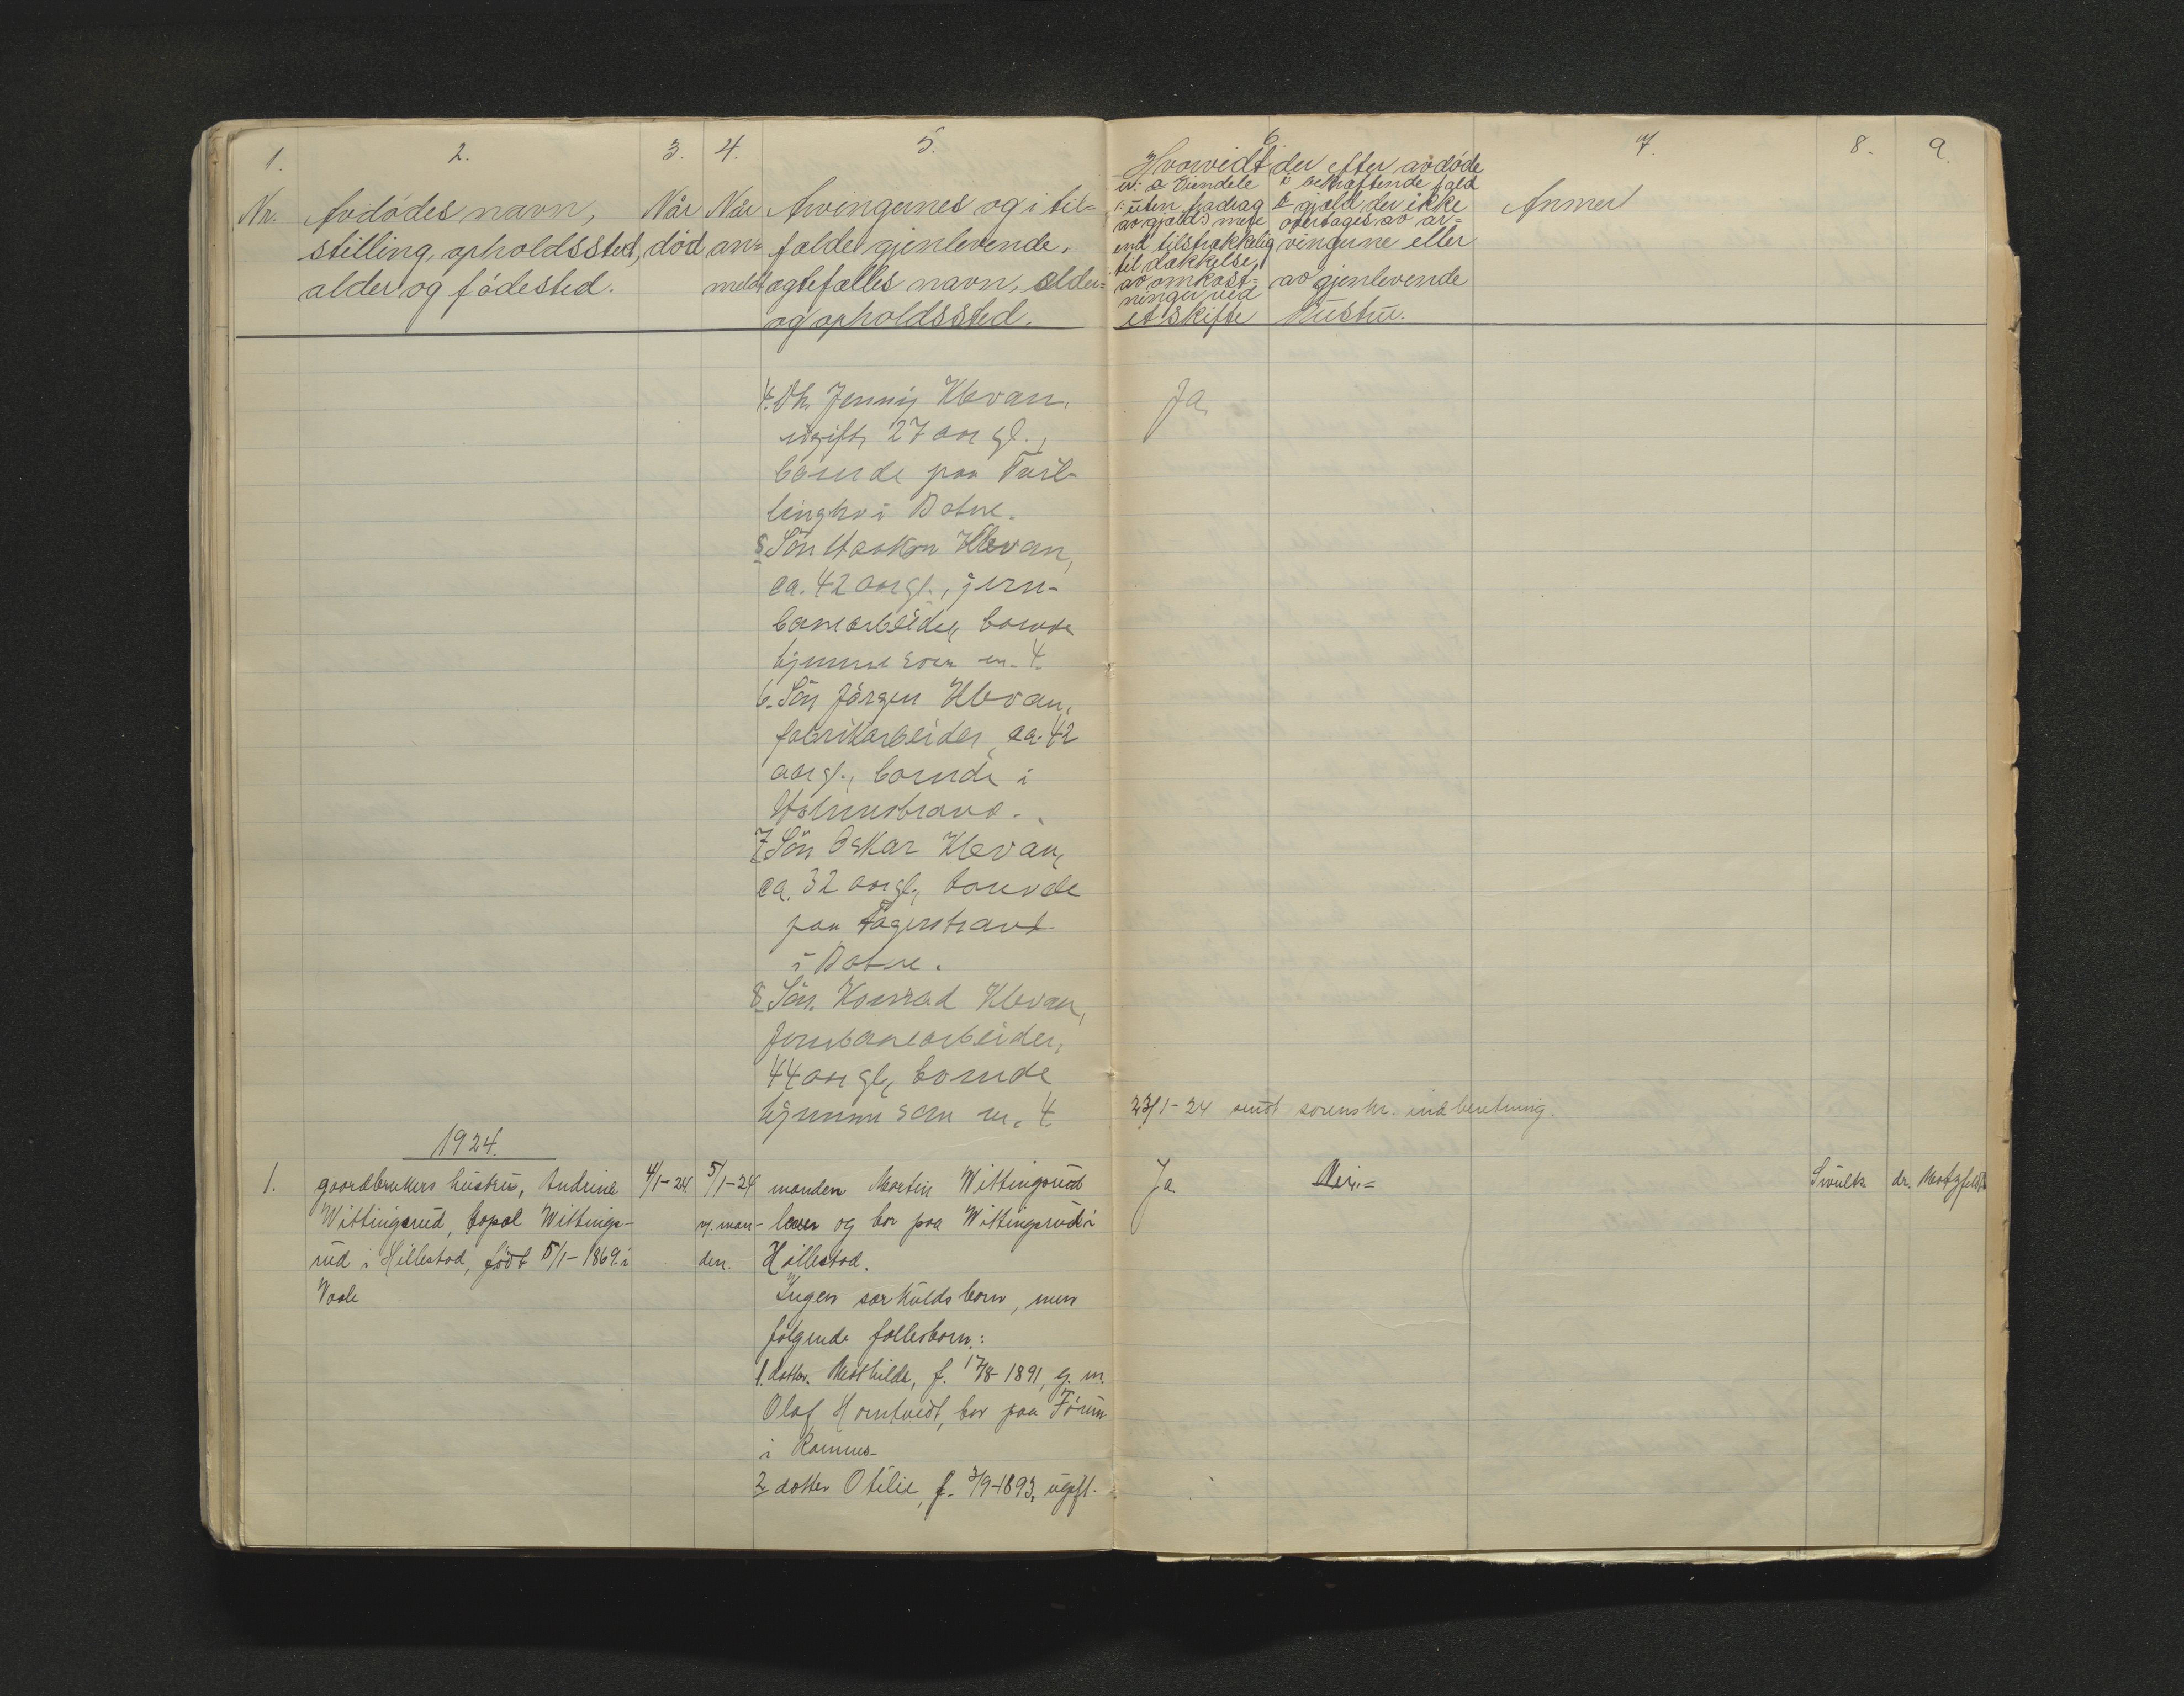 1. 2. 3. 4. 5. 6. 7. 8. 9.
Nr.
Avdödes navn,
stilling, opholdssted,
alder og födested.
Når
död
Når
an-
meldt
Arvingernes og i til-
fælde gjenlevende,
ægtefælles navn, alder
og opholdssted.
Hvorvidt der efter avdöde
er: a Eiendele
: uten fradrag
av gjæld: mere
end tilstrækkelig
til dækkelse,
av omkost-
ninger ved
et skifte
i bekræftende fald
b gjæld der ikke
overtages av ar-
vingerne eller
av gjenlevende
hustru.
Anmer
4. Dtr. Jenny Klevan,
ugift, 27 aar gl.,
boende paa
i Botne.
5 Sön Haakon Klevan,
ca. 42 aar gl., jern-
banearbeider, boende
hjemme som nr. 4.
6. Sön Jörgen Klevan,
fabrikarbeider, ca. 42
aar gl., boende i
Holmestrand.
7. Sön Oskar Klevan,
ca. 32 aar gl., boende
paa Fagerstrand
i Botne.
8. Sön Konrad Klevan,
Jernbanearbeider,
44 aar gl., boende
hjemme som nr. 4.
Ja
23/1-24 sendt sorenskr. indberetning.
1924.
1.
gaardbrukers hustru, Andrine
Wittingsrud, bopæl Wittings-
rud i Hillestad, födt 5/1-1869 i
Vaale
4/1-24.
5/1-24
v. man-
den.
manden Martin Wittingsrud
lever og bor paa Wittingsrud i
Hillestad.
Ingen særkuldsbarn, men
fölgende fællesbarn:
1. datter Mathilde, f. 17/8 1891, g. m.
Olaf Horntvedt, bor paa
i Ramnes
2. datter Otilie, f. 3/9-1893, ugift.
Ja
Nei.=
dr. Motzfeldt